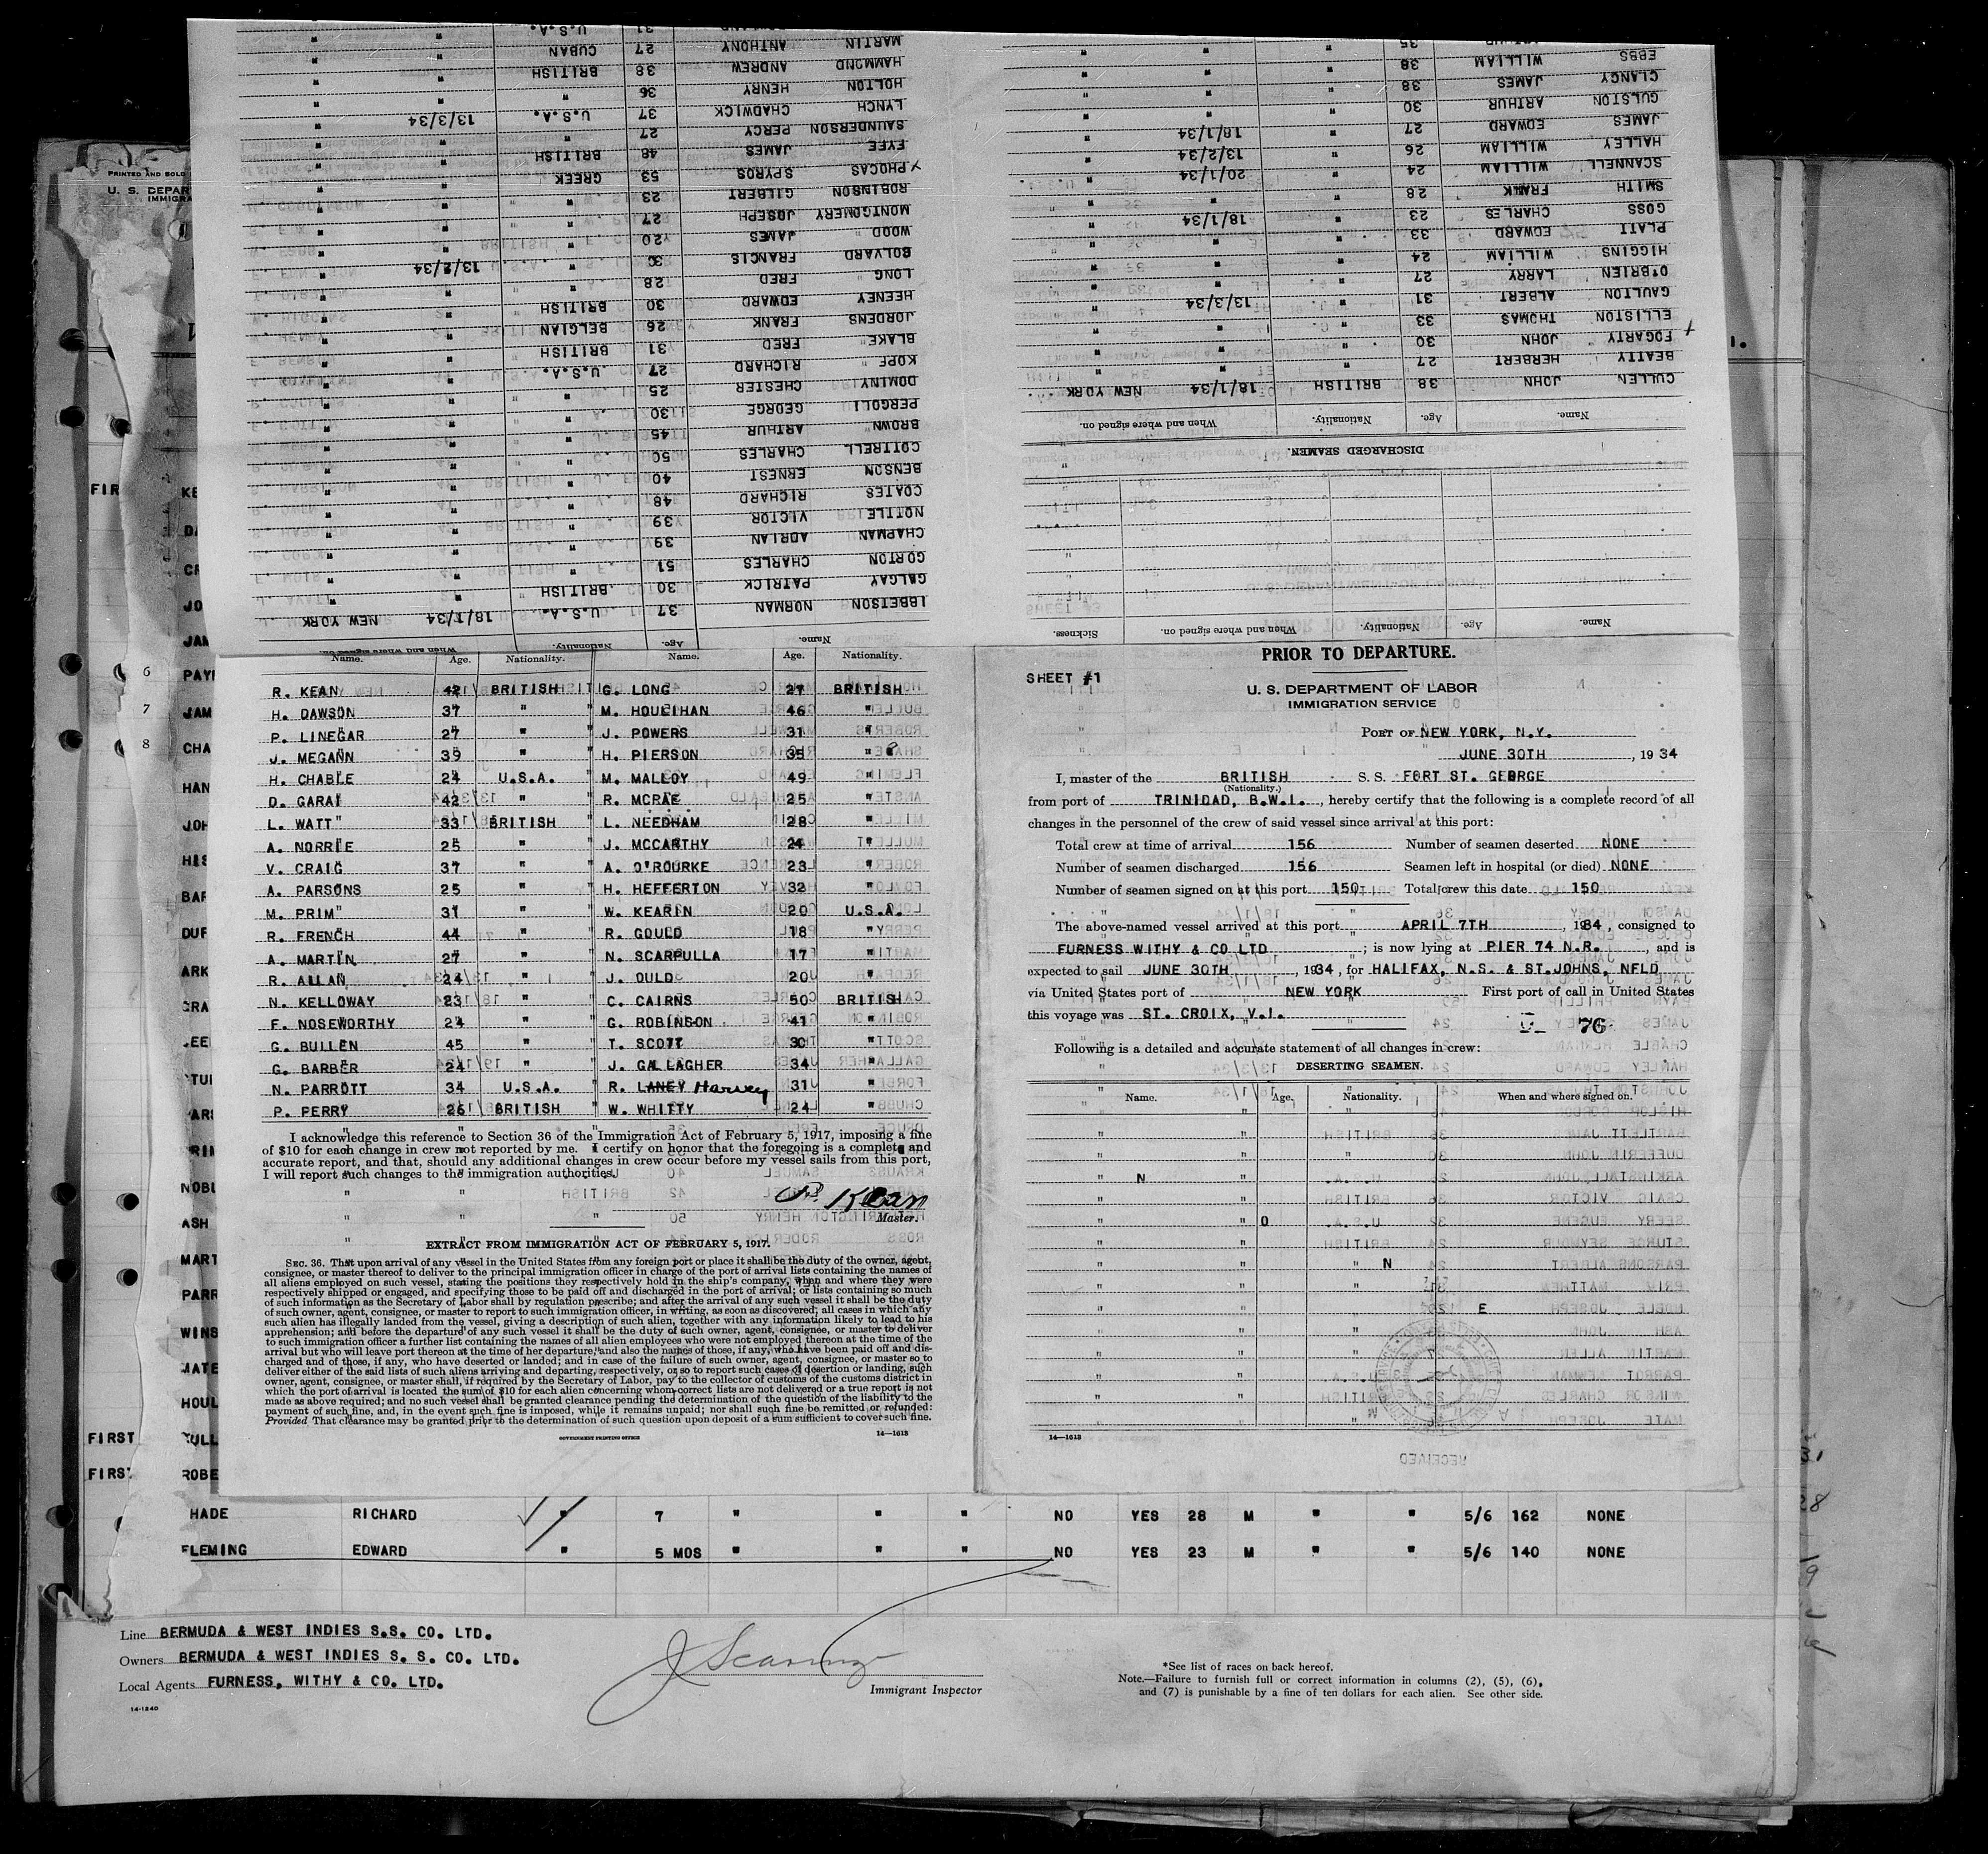 PRINTED AND SOLD
U. S. DEPAR
IMMIGRA
U.S.A. 31
MARTIN ANTHONY 27 CUBAN " "
HAMMOND ANDREW 38 BRITISH " "
HOLTON HENRY 36 " " "
LYNCH CHADWICK 37 U.S.A. 13/3/34 "
SAUNDERSON PERCY 27 " " "
FYFE JAMES 48 BRITISH " "
PHOCAS SPYROS 53 GREEK " "
ROBINSON GILBERT 23 " " "
MONTGOMERY JOSEPH 27 " " "
WOOD JAMES 20 " " "
BOLVARD FRANCIS 30 " 13/2/34 "
LONG FRED 28 " " "
HEENEY EDWARD 30 BRITISH " "
JORDENS FRANK 26 BELGIAN " "
BLAKE FRED 31 BRITISH " "
KOPF RICHARD 27 U.S.A. " "
DOMINY CHESTER 25 " " "
PERGOLI GEORGE 30 " " "
BROWN ARTHUR 45 " " "
COTTRELL CHARLES 50 " " "
BENSON ERNEST 40 " " "
COATES RICHARD 48 " " "
NOTTLE VICTOR 39 " " "
CHAPMAN ADRIAN 39 " " "
GORTON CHARLES 51 " " "
GALGAY PATRICK 30 BRITISH " "
IBBETSON NORMAN 37 U.S.A. 18/1/34 NEW YORK
Name. Age. Nationality. When and where signed on.
35
EBBS WILLIAM 38 " " "
CLANCY JAMES 38 " " "
GULSTON ARTHUR 30 " " "
JAMES EDWARD 27 " 18/1/34 "
HALLEY WILLIAM 26 " 13/2/34 "
SCANNELL WILLIAM 24 " 20/1/34 "
SMITH FRANK 28 " " "
GOSS CHARLES 23 " 18/1/34 "
PLATT EDWARD 33 " " "
HIGGINS WILLIAM 24 " " "
O'BRIEN LARRY 27 " " "
GAULTON ALBERT 31 " 13/3/34 "
ELLISTON THOMAS 33 " " "
FOGARTY JOHN 30 " " "
BEATTY HERBERT 27 " " "
CULLEN JOHN 38 BRITISH 18/1/34 NEW YORK
Name. Age. Nationality. When and where signed on.
DISCHARGED SEAMEN.
Name. Age. Nationality. When and where signed on. Sickness.
Name. Age. Nationality. Name. Age. Nationality.
R. KEAN 42 BRITISH G. LONG 27 BRITISH
H. DAWSON 37 " M. HOULIHAN 46 "
P. LINEGAR 27 " J. POWERS 31 "
J. MEGANN 39 " H. PIERSON 35 "
H. CHABLE 24 U.S.A. M. MALLOY 49 "
D. GARAI 42 " R. MCRAE 25 "
L. WATT 33 BRITISH L. NEEDHAM 28 "
A. NORRIE 25 " J. MCCARTHY 24 "
V. CRAIG 37 " A. O'ROURKE 23 "
A. PARSONS 25 " H. HEFFERTON 32 "
M. PRIM 31 " W. KEARIN 20 U.S.A.
R. FRENCH 44 " R. GOULD 18 "
A. MARTIN 27 " N. SCARPULLA 17 "
R. ALLAN 24 " J. OULD 20 "
N. KELLOWAY 23 " C. CAIRNS 50 BRITISH
F. NOSEWORTHY 24 " G. ROBINSON 41 "
G. BULLEN 45 " T. SCOTT 30 "
G. BARBER 24 " J. GALLAGHER 34 "
N. PARROTT 34 U.S.A. R. LANEY Harvey 31 "
P. PERRY 26 BRITISH W. WHITTY 24 "
I acknowledge this reference to Section 36 of the Immigration Act of February 5, 1917, imposing a fine
of $10 for each change in crew not reported by me. I certify on honor that the foregoing is a complete and
accurate report, and that, should any additional changes in crew occur before my vessel sails from this port,
I will report such changes to the immigration authorities.
R. Kean
Master.
EXTRACT FROM IMMIGRATION ACT OF FEBRUARY 5, 1917.
SEC. 36. That upon arrival of any vessel in the United States from any foreign port or place it shall be the duty of the owner, agent,
consignee, or master thereof to deliver to the principal immigration officer in charge of the port of arrival lists containing the names of
all aliens employed on such vessel, stating the positions they respectively hold in the ship's company, when and where they were
respectively shipped or engaged, and specifying those to be paid off and discharged in the port of arrival; or lists containing so much
of such information as the Secretary of Labor shall by regulation prescribe; and after the arrival of any such vessel it shall be the duty
of such owner, agent, consignee, or master to report to such immigration officer, in writing, as soon as discovered, all cases in which any
such alien has illegally landed from the vessel, giving a description of such alien, together with any information likely to lead to his
apprehension; and before the departure of any such vessel it shall be the duty of such owner, agent, consignee, or master to deliver
to such immigration officer a further list containing the names of all alien employees who were not employed thereon at the time of the
arrival but who will leave port thereon at the time of her departure, and also the names of those, if any, who have been paid off and dis-
charged and of those, if any, who have deserted or landed; and in case of the failure of such owner, agent, consignee, or master so to
deliver either of the said lists of such aliens arriving and departing, respectively, or so to report such cases of desertion or landing, such
owner, agent, consignee, or master shall, if required by the Secretary of Labor, pay to the collector of customs of the customs district in
which the port of arrival is located the sum of $10 for each alien concerning whom correct lists are not delivered or a true report is not
made as above required; and no such vessel shall be granted clearance pending the determination of the question of the liability to the
payment of such fine, and, in the event such fine is imposed, while it remains unpaid; nor shall such fine be remitted or refunded:
Provided That clearance may be granted prior to the determination of such question upon deposit of a sum sufficient to cover such fine.
GOVERNMENT PRINTING OFFICE 14—1613
PRIOR TO DEPARTURE.
SHEET #1
U. S. DEPARTMENT OF LABOR
IMMIGRATION SERVICE
PORT OF NEW YORK, N.Y.
JUNE 30TH, 1934
I, master of the BRITISH S. S. FORT ST. GEORGE
(Nationality.)
from port of TRINIDAD, B.W.I., hereby certify that the following is a complete record of all
changes in the personnel of the crew of said vessel since arrival at this port:
Total crew at time of arrival 156 Number of seamen deserted NONE
Number of seamen discharged 156 Seamen left in hospital (or died) NONE
Number of seamen signed on at this port 150 Total crew this date 150
The above-named vessel arrived at this port APRIL 7TH, 1934, consigned to
FURNESS WITHY & CO LTD; is now lying at PIER 74 N.R., and is
expected to sail JUNE 30TH, 1934, for HALIFAX, N.S. & ST.JOHNS, NFLD
via United States port of NEW YORK First port of call in United States
this voyage was ST. CROIX, V.I.
76
Following is a detailed and accurate statement of all changes in crew:
DESERTING SEAMEN.
Name. Age. Nationality. When and where signed on.
N
O
N
E
14—1613
RECEIVED
6
7
8
FIR
KE
DA
CR
JO
JAM
PAY
JAM
CHA
HAN
JOH
HIS
BAR
DUF
ARK
CRA
NOBL
ASH
MART
PARR
WINS
MATE
HOUL
FIRST
FIRST ROBE
HADE RICHARD " 7 " " " NO YES 28 M " " 5/6 162 NONE
FLEMING EDWARD " 5 MOS " " " NO YES 23 M " " 5/6 140 NONE
Line BERMUDA & WEST INDIES S.S. CO. LTD.
Owners BERMUDA & WEST INDIES S. S. CO. LTD.
Local Agents FURNESS, WITHY & CO. LTD.
14-1240
Immigrant Inspector
*See list of races on back hereof.
Note.—Failure to furnish full or correct information in columns (2), (5), (6),
and (7) is punishable by a fine of ten dollars for each alien. See other side.